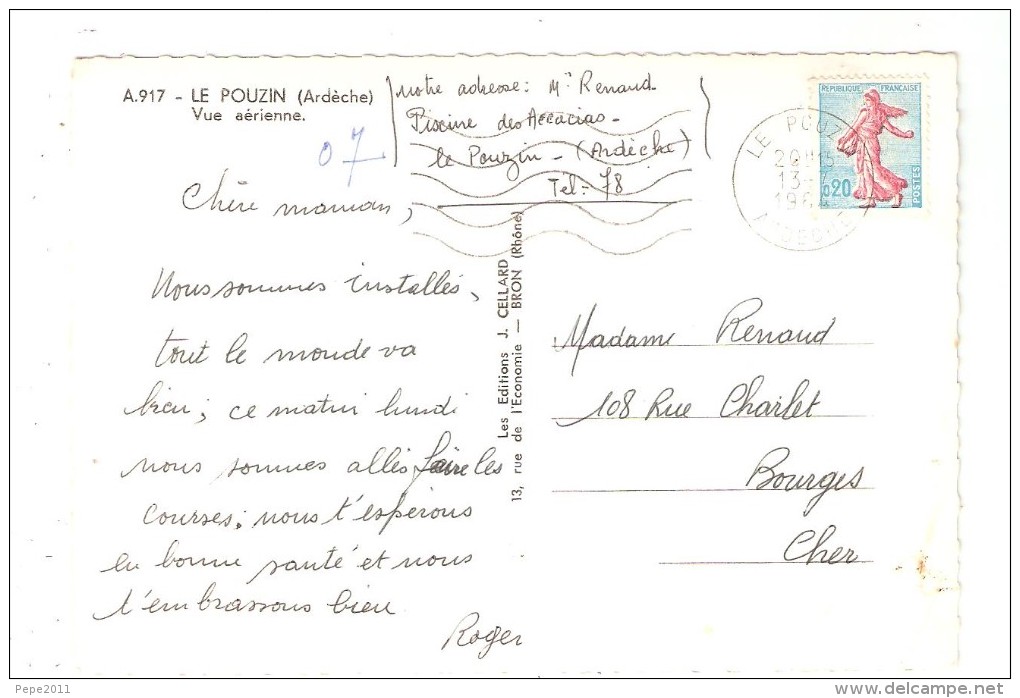 A.917 - LE POUZIN (Ardèche)
Vue aérienne.
07
notre adresse: Mr Renaud
Piscine des Accacias -
le Pouzin - (Ardèche)
Tél - 78
REPUBLIQUE FRANÇAISE
0,20
POSTES
LE POUZIN
20H15
13-7
1964
ARDECHE
Chère maman,
Nous sommes installés,
tout le monde va
bien; ce matin lundi
nous sommes allés faire les
courses; nous t'espérons
en bonne santé et nous
t'embrassons bien
Roger
Les Editions J. CELLARD
13, rue de l'Economie — BRON (Rhône)
Madame Renaud
108 Rue Charlet
Bourges
Cher
Pepe2011
www.delcampe.net